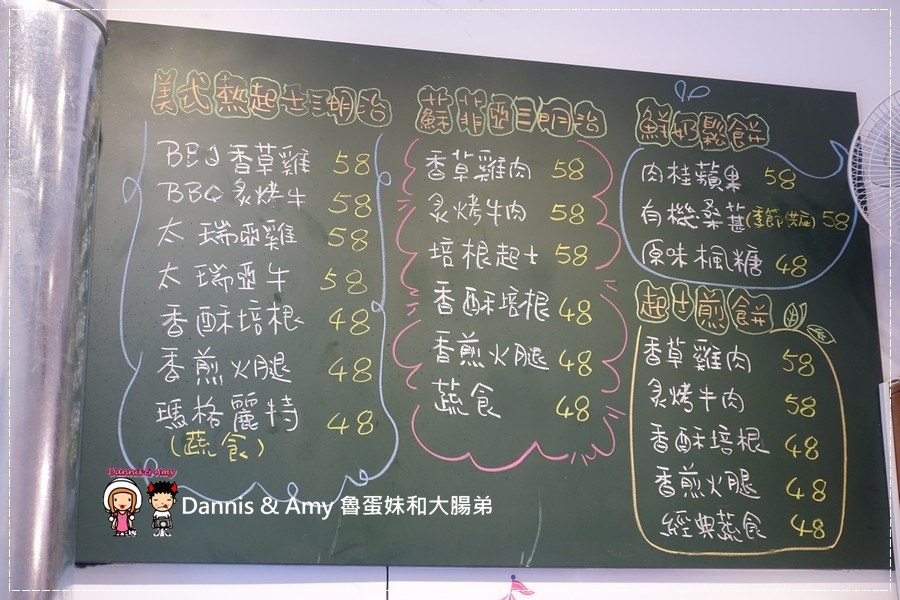 美式熱起士三明治
BBQ香草雞 58
BBQ炙烤牛 58
太瑞亞雞 58
太瑞亞牛 58
香酥培根 48
香煎火腿 48
瑪格麗特 48
(蔬食)
蘇菲亞三明治
香草雞肉 58
炙烤牛肉 58
培根起士 58
香酥培根 48
香煎火腿 48
蔬食 48
鮮奶鬆餅
肉桂蘋果 58
有機桑葚(季節供应) 58
原味楓糖 48
起士煎餅
香草雞肉 58
炙烤牛肉 58
香酥培根 48
香煎火腿 48
經典蔬食 48
Dannis & Amy
Dannis & Amy 魯蛋妹和大腸弟